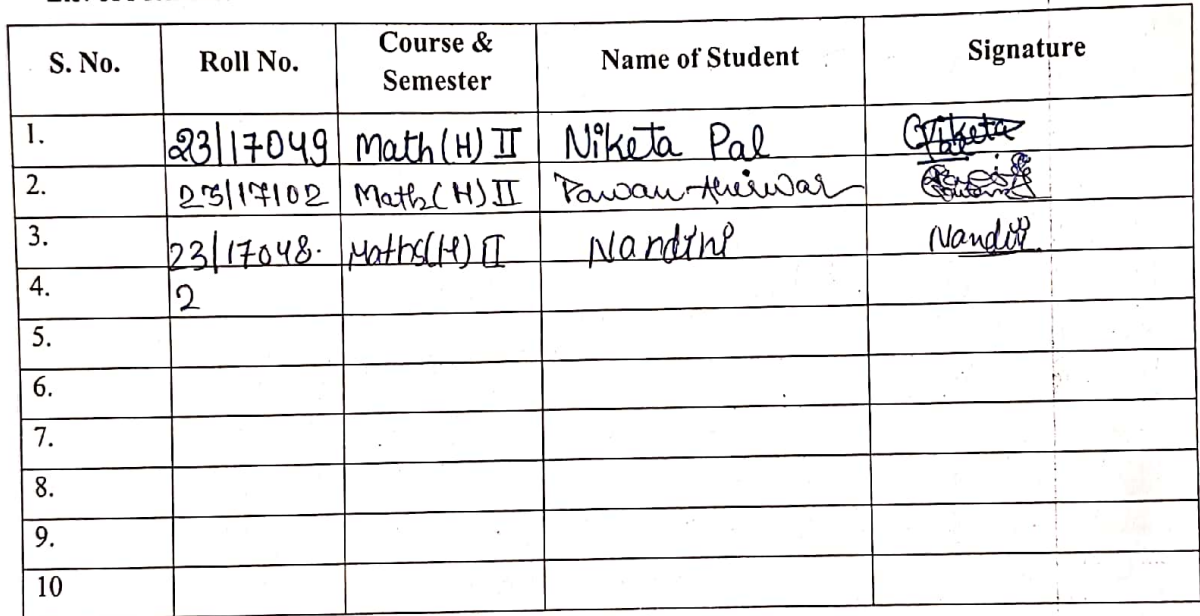 S. No. Roll No. Course & Semester Name of Student Signature
1. 23/17049 Math(H) II Niketa Pal Niketa Pal
2. 23/17102 Math(H) II Pawan
3. 23/17048. Maths(H) II Nandini Nandini
4. 2
5.
6.
7.
8.
9.
10